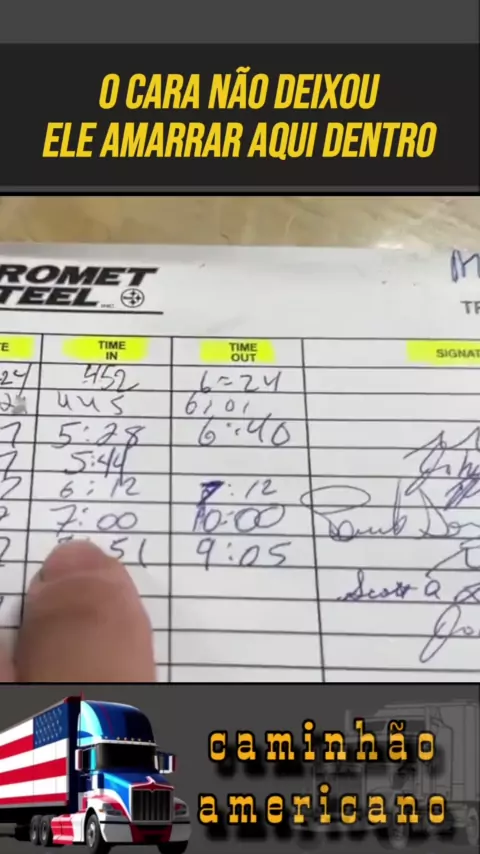 O CARA NÃO DEIXOU
ELE AMARRAR AQUI DENTRO
ROMET
TEEL INC.
TIME IN
TIME OUT
SIGNAT
452 6=24
445 6:01
5:28 6:40
5:44
6:12 7:12
7:00 10:00
51 9:05
Scott
caminhão
americano